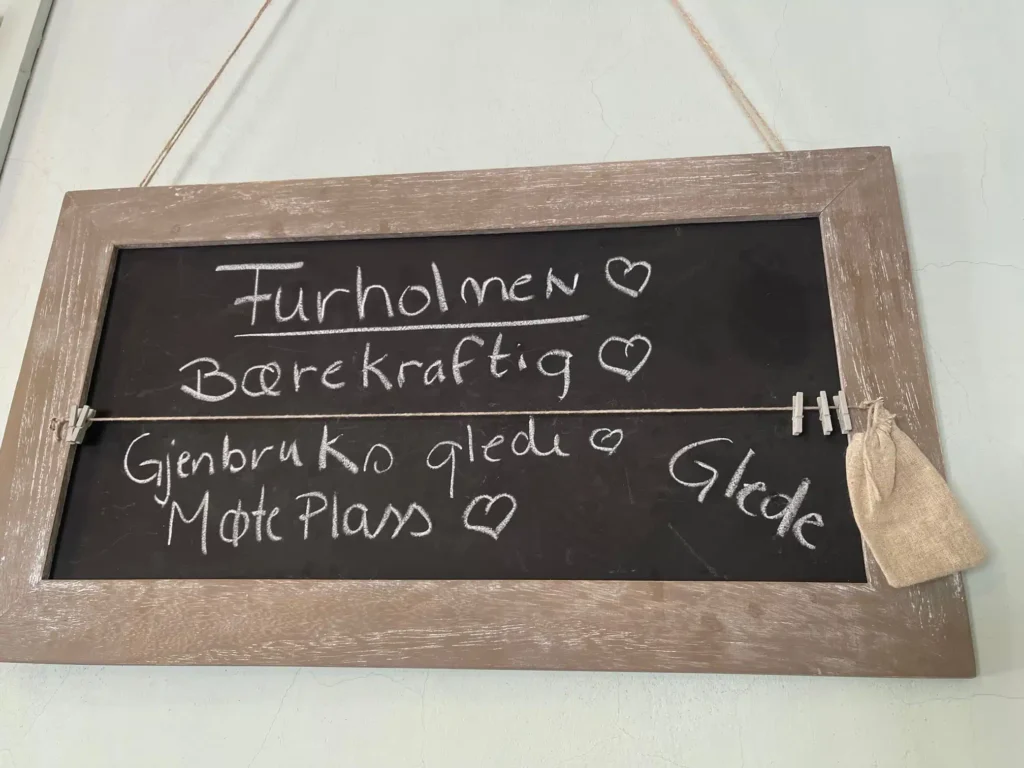 Furholmen ♡
Bærekraftig ♡
Gjenbruks glede ♡
Møte Plass ♡
Glede